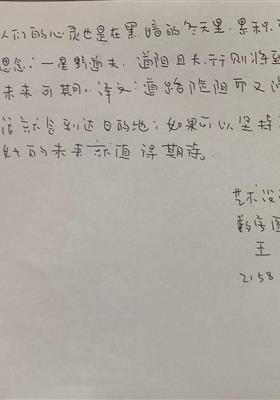 人们的心灵也是在黑暗的冬天里,累积
思念,一星野道夫,道阻且长,行则将至
未来可期,译文:道路险阻而又漫
信就会到达目的地;如果可以坚持
好的未来就值得期待。
艺术设
数字图
王
2158